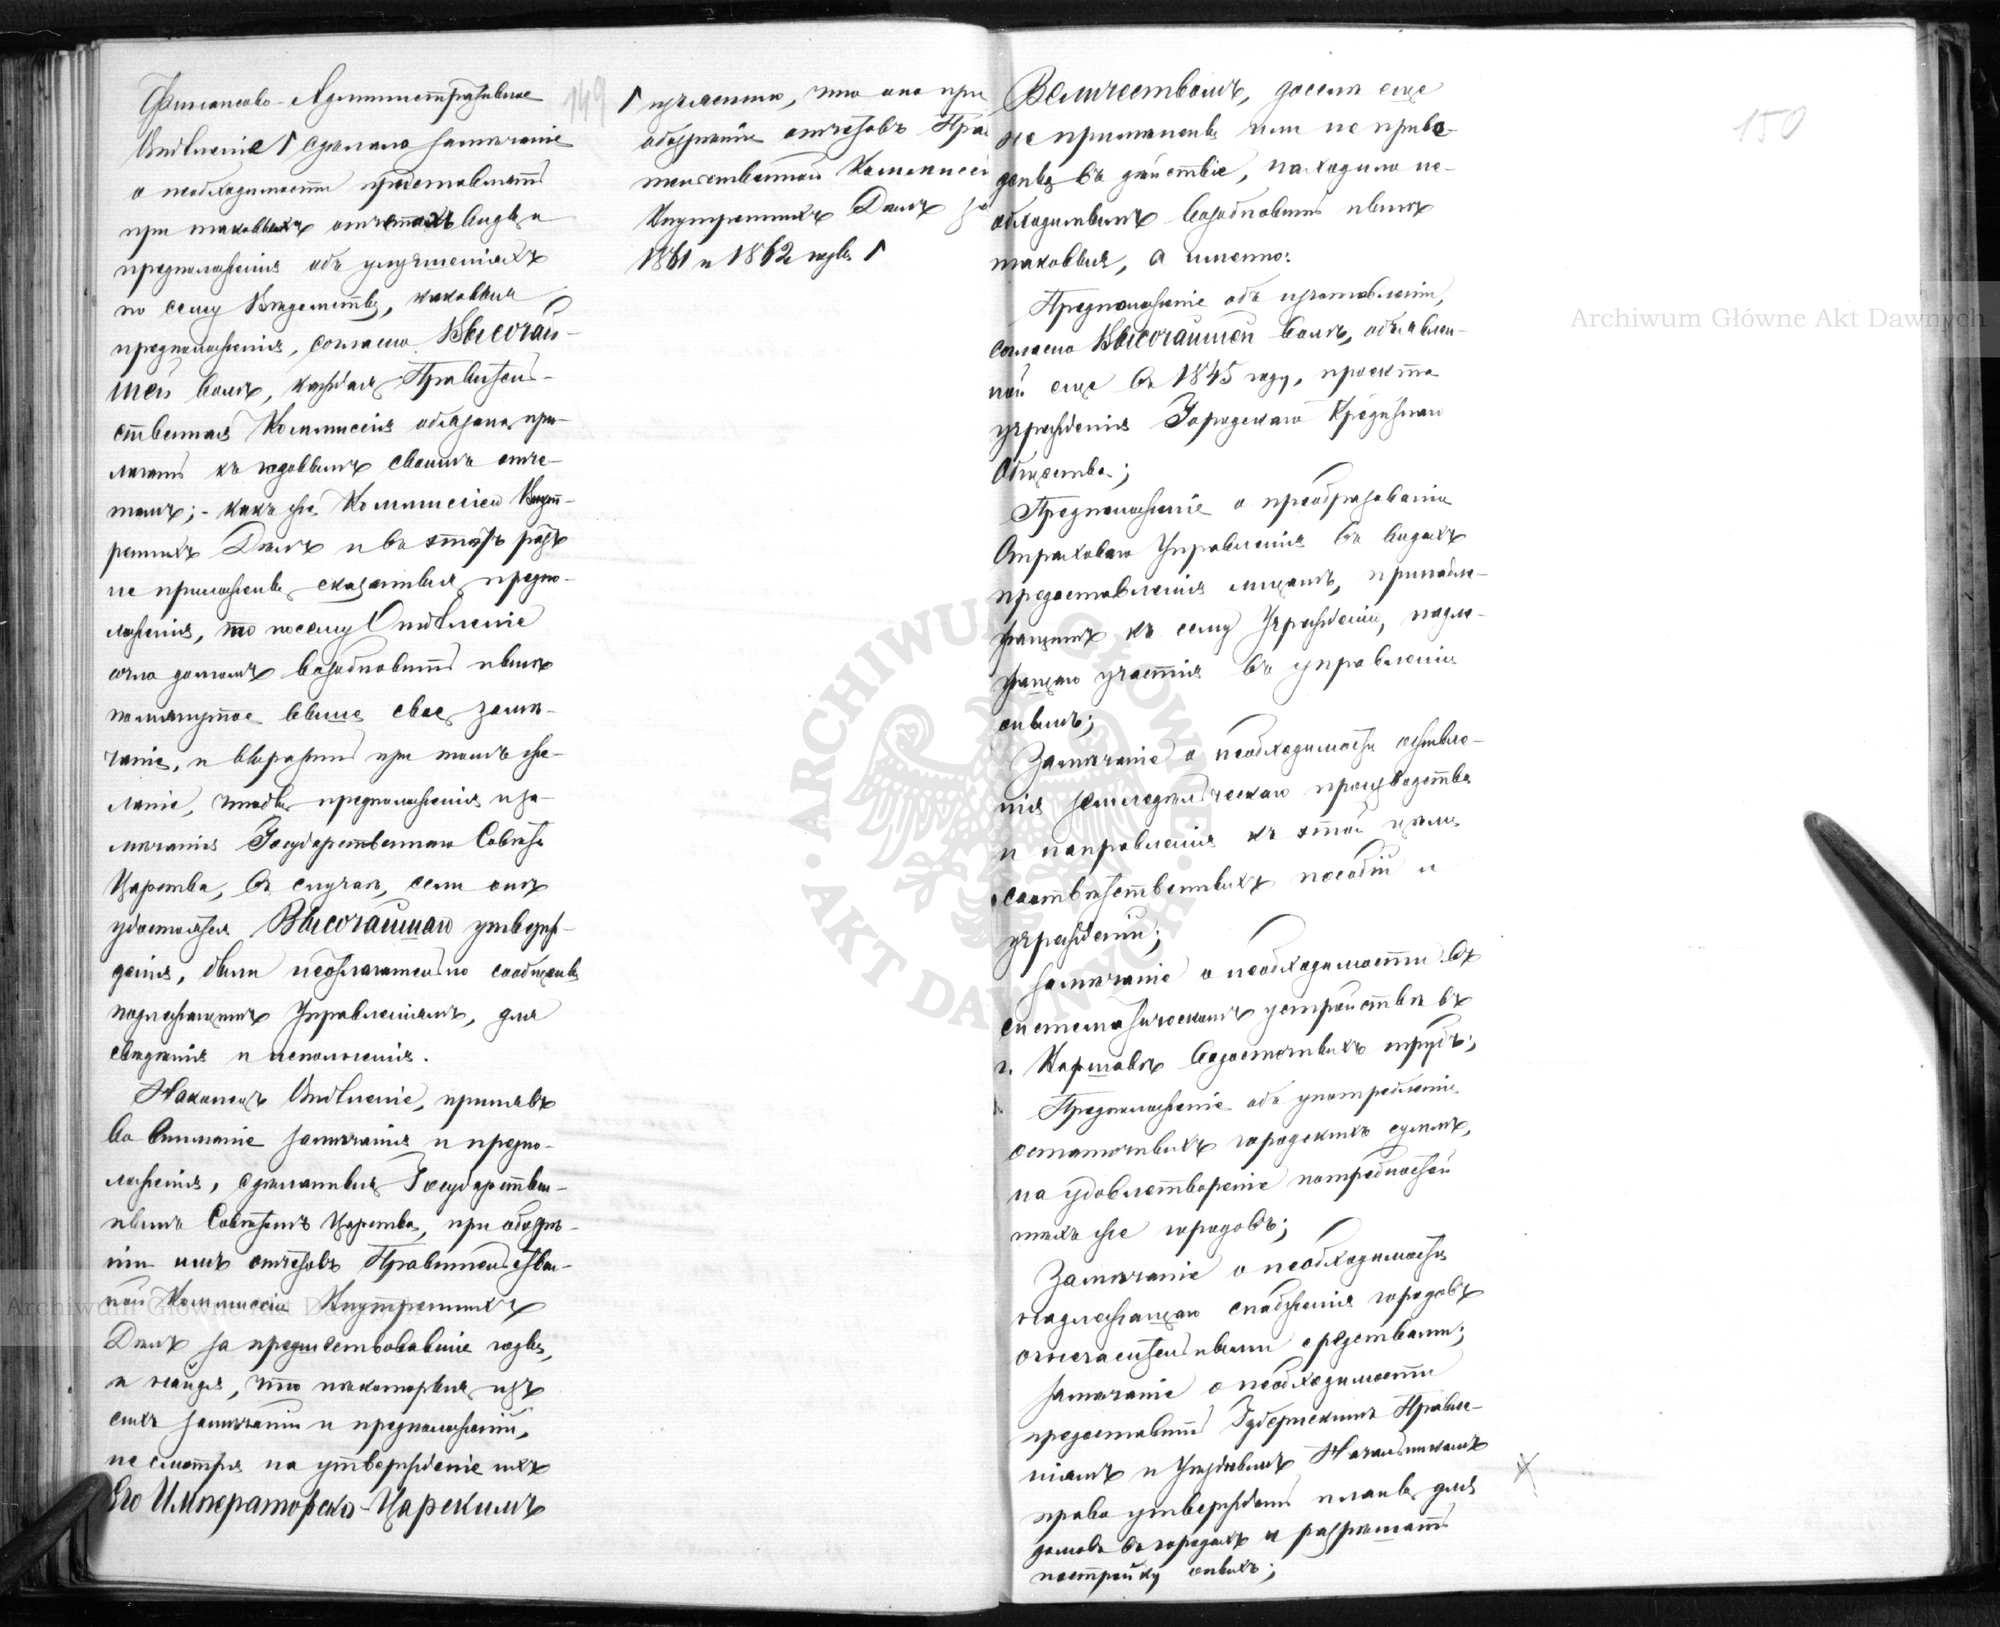 149
Финансово-Административное
Отдѣленіе Г сдѣлало замѣчаніе
о необходимости представлять
при таковыхъ отчетахъ виды и
предположенія объ улучшеніяхъ
по сему Вѣдомству, каковыя
предположенія, согласно Высочай-
шей волѣ, каждая Правитель-
ственная Коммиссія обязана при-
лагать къ годовымъ своимъ отче-
тамъ; - какъ же Коммиссіею Внут-
реннихъ Дѣлъ и въ этотъ разъ
не приложены сказанныя предпо-
ложенія, то посему Отдѣленіе
сочло долгомъ возобновить нынѣ
помянутое выше свое замѣ-
чаніе, и выразить при томъ же-
ланіе, чтобы предположенія и за-
мѣчанія Государственнаго Совѣта
Царства, въ случаѣ, если они
удостоятся Высочайшаго утверж-
денія, были неотлагательно сообщены
подлежащимъ Управленіямъ, для
свѣдѣнія и исполненія.
Наконецъ Отдѣленіе, принявъ
во вниманіе замѣчанія и предпо-
ложенія, сдѣланныя Государствен-
нымъ Совѣтомъ Царства, при обозрѣ-
ніи имъ отчетовъ Правительствен-
ной Коммиссіи Внутреннихъ
Дѣлъ за предшествовавшіе годы,
и найдя, что нѣкоторыя изъ
сихъ замѣчаній и предположеній,
не смотря на утвержденіе ихъ
Его Императорско-Царскимъ
Г изъясненію, что оно при
обозрѣніи отчетовъ Пра
тельственной Коммиссіи
Внутреннихъ Дѣлъ за
1861 и 1862 годы Г
150
Величествомъ, доселѣ еще
не примѣнены или не приве-
дены въ дѣйствіе, находило не-
обходимымъ возобновить нынѣ
таковыя, а именно:
Предположеніе объ изготовленіи,
согласно Высочайшей волѣ, объявлен-
ной еще въ 1845 году, проекта
учрежденія Городскаго Кредитнаго
Общества;
Предположеніе о преобразованіи
Страховаго Управленія въ видахъ
предоставленія лицамъ, принадле-
жащимъ къ сему Учрежденію, надле-
жащаго участія въ управленіи
онымъ;
Замѣчаніе о необходимости оживле-
нія земледѣльческаго производства
и направленія къ этой цѣли
соотвѣтственныхъ пособій и
учрежденій;
Замѣчаніе о необходимости въ
систематическомъ устройствѣ въ
г. Варшавѣ водосточныхъ трубъ;
Предположеніе объ употребленіи
остаточныхъ городскихъ суммъ,
на удовлетвореніе потребностей
тѣхъ же городовъ;
Замѣчаніе о необходимости
надлежащаго снабженія городовъ
огнегасительными средствами;
Замѣчаніе о необходимости
предоставить Губернскимъ Правле-
ніямъ и Уѣзднымъ Начальникамъ
право утверждать планы для
домовъ въ городахъ и разрѣшать
постройку оныхъ;
Archiwum Główne Akt Dawnych
Archiwum Główne Akt Dawnych
ARCHIWUM GŁÓWNE AKT DAWNYCH